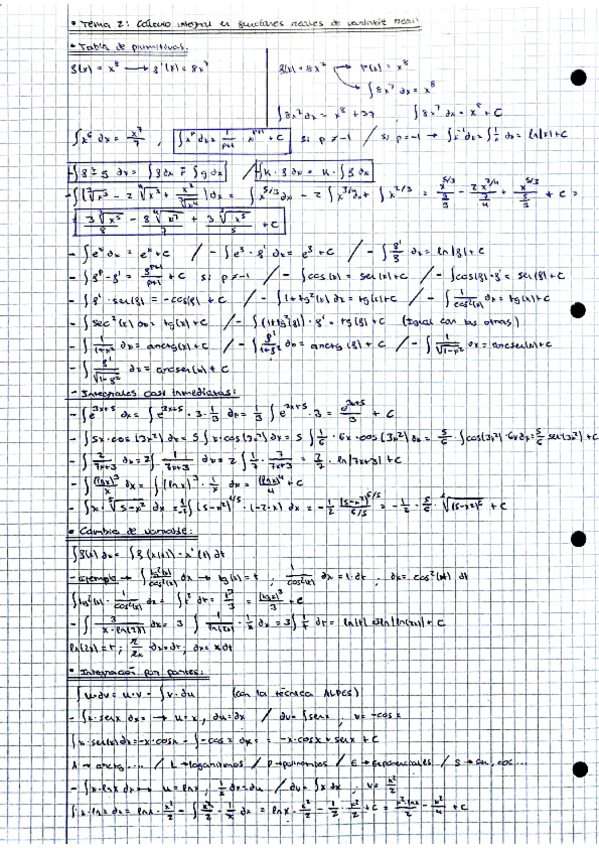 • Tema 2: Cálculo integral en funciones reales de variable real:
• Tabla de primitivas:
f(x) = x⁸ → f'(x) = 8x⁷
f(x) = 8x⁷ → F(x) = x⁸
→ ∫8x⁷ dx = x⁸
∫8x⁷ dx = x⁸ + 37 , ∫8x⁷ dx = x⁸ + C
∫x⁶ dx = x⁷/7 , ∫xᵖ dx = 1/(p+1) · xᵖ⁺¹ + C si p ≠ -1 / si p = -1 → ∫x⁻¹ dx = ∫1/x dx = ln|x| + C
- ∫f ± g dx = ∫f dx ± ∫g dx / - ∫k · f dx = k · ∫f dx
+ C =
+ C
- ∫eˣ dx = eˣ + C / - ∫eᶠ · f' dx = eᶠ + C / - ∫f'/f dx = ln|f| + C
- ∫fᵖ · f' = fᵖ⁺¹/(p+1) + C si p ≠ -1 / - ∫cos(x) = sen(x) + C / - ∫cos(f) · f' = sen(f) + C
- ∫f' · sen(f) = -cos(f) + C / - ∫1 + tg²(x) dx = tg(x) + C / - ∫1/cos²(x) dx = tg(x) + C
- ∫sec²(x) dx = tg(x) + C / - ∫(1 + tg²(f)) · f' = tg(f) + C (Igual con las otras)
- ∫1/(1+x²) dx = arctg(x) + C / - ∫f'/(1+f²) dx = arctg(f) + C / - ∫1/√(1-x²) dx = arcsen(x) + C
- ∫f'/√(1-f²) dx = arcsen(x) + C
- Integrales casi inmediatas:
- ∫e³ˣ⁺⁵ dx = ∫e³ˣ⁺⁵ · 3 · 1/3 dx = 1/3 ∫e³ˣ⁺⁵ · 3 = e³ˣ⁺⁵/3 + C
- ∫5x · cos(3x²) dx = 5∫x · cos(3x²) dx = 5∫1/6 · 6x · cos(3x²) dx = 5/6 · ∫cos(3x²) · 6x dx = 5/6 sen(3x²) + C
- ∫2/(7x+3) dx = 2∫1/(7x+3) dx = 2∫1/7 · 7/(7x+3) = 2/7 · ln|7x+3| + C
- ∫(lnx)³/x dx = ∫(lnx)³ · 1/x dx = (lnx)⁴/4 + C
• Cambio de variable:
∫f(x) dx = ∫f(x(t)) · x'(t) dt
- ejemplo → ∫tg²(x)/cos²(x) dx → tg(x) = t , 1/cos²(x) dx = 1 · dt , dx = cos²(x) dt
∫tg²(x) · 1/cos²(x) dx = ∫t² dt = t³/3 = (tgx)³/3 + C
• Integración por partes:
∫u·dv = u·v - ∫v·du (con la técnica ALPES)
- ∫x·senx dx = → u = x , du = dx / dv = ∫senx , v = -cosx
∫x·sen(x) dx = -x·cosx - ∫-cosx dx = -x·cosx + senx + C
A → arctg,... / L → logaritmos / P → polinomios / E → exponenciales / S → sen, cos...
- ∫x·lnx dx → u = lnx , 1/x dx = du / dv = ∫x dx , v = x²/2
∫x·lnx dx = lnx · x²/2 - ∫x²/2 · 1/x dx = lnx · x²/2 - 1/2 · x²/2 + C = x²·lnx/2 - x²/4 + C